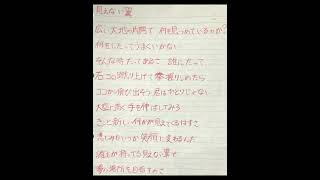 見えない翼
広い大地の片隅で 何を見つめているのか?
何をしたってうまくいかない
そんな時だってあるさ 誰にだって
石コロ蹴り上げて拳握りしめたら
ココから飛び出そう 君はひとりじゃない
大空に高く手を伸ばしてみろ
きっと新しい何かが見えてくるはずさ
悲しみもいつか笑顔に変わるんだ
誰もが持ってる見えない翼で
夢の場所を目指すんだ